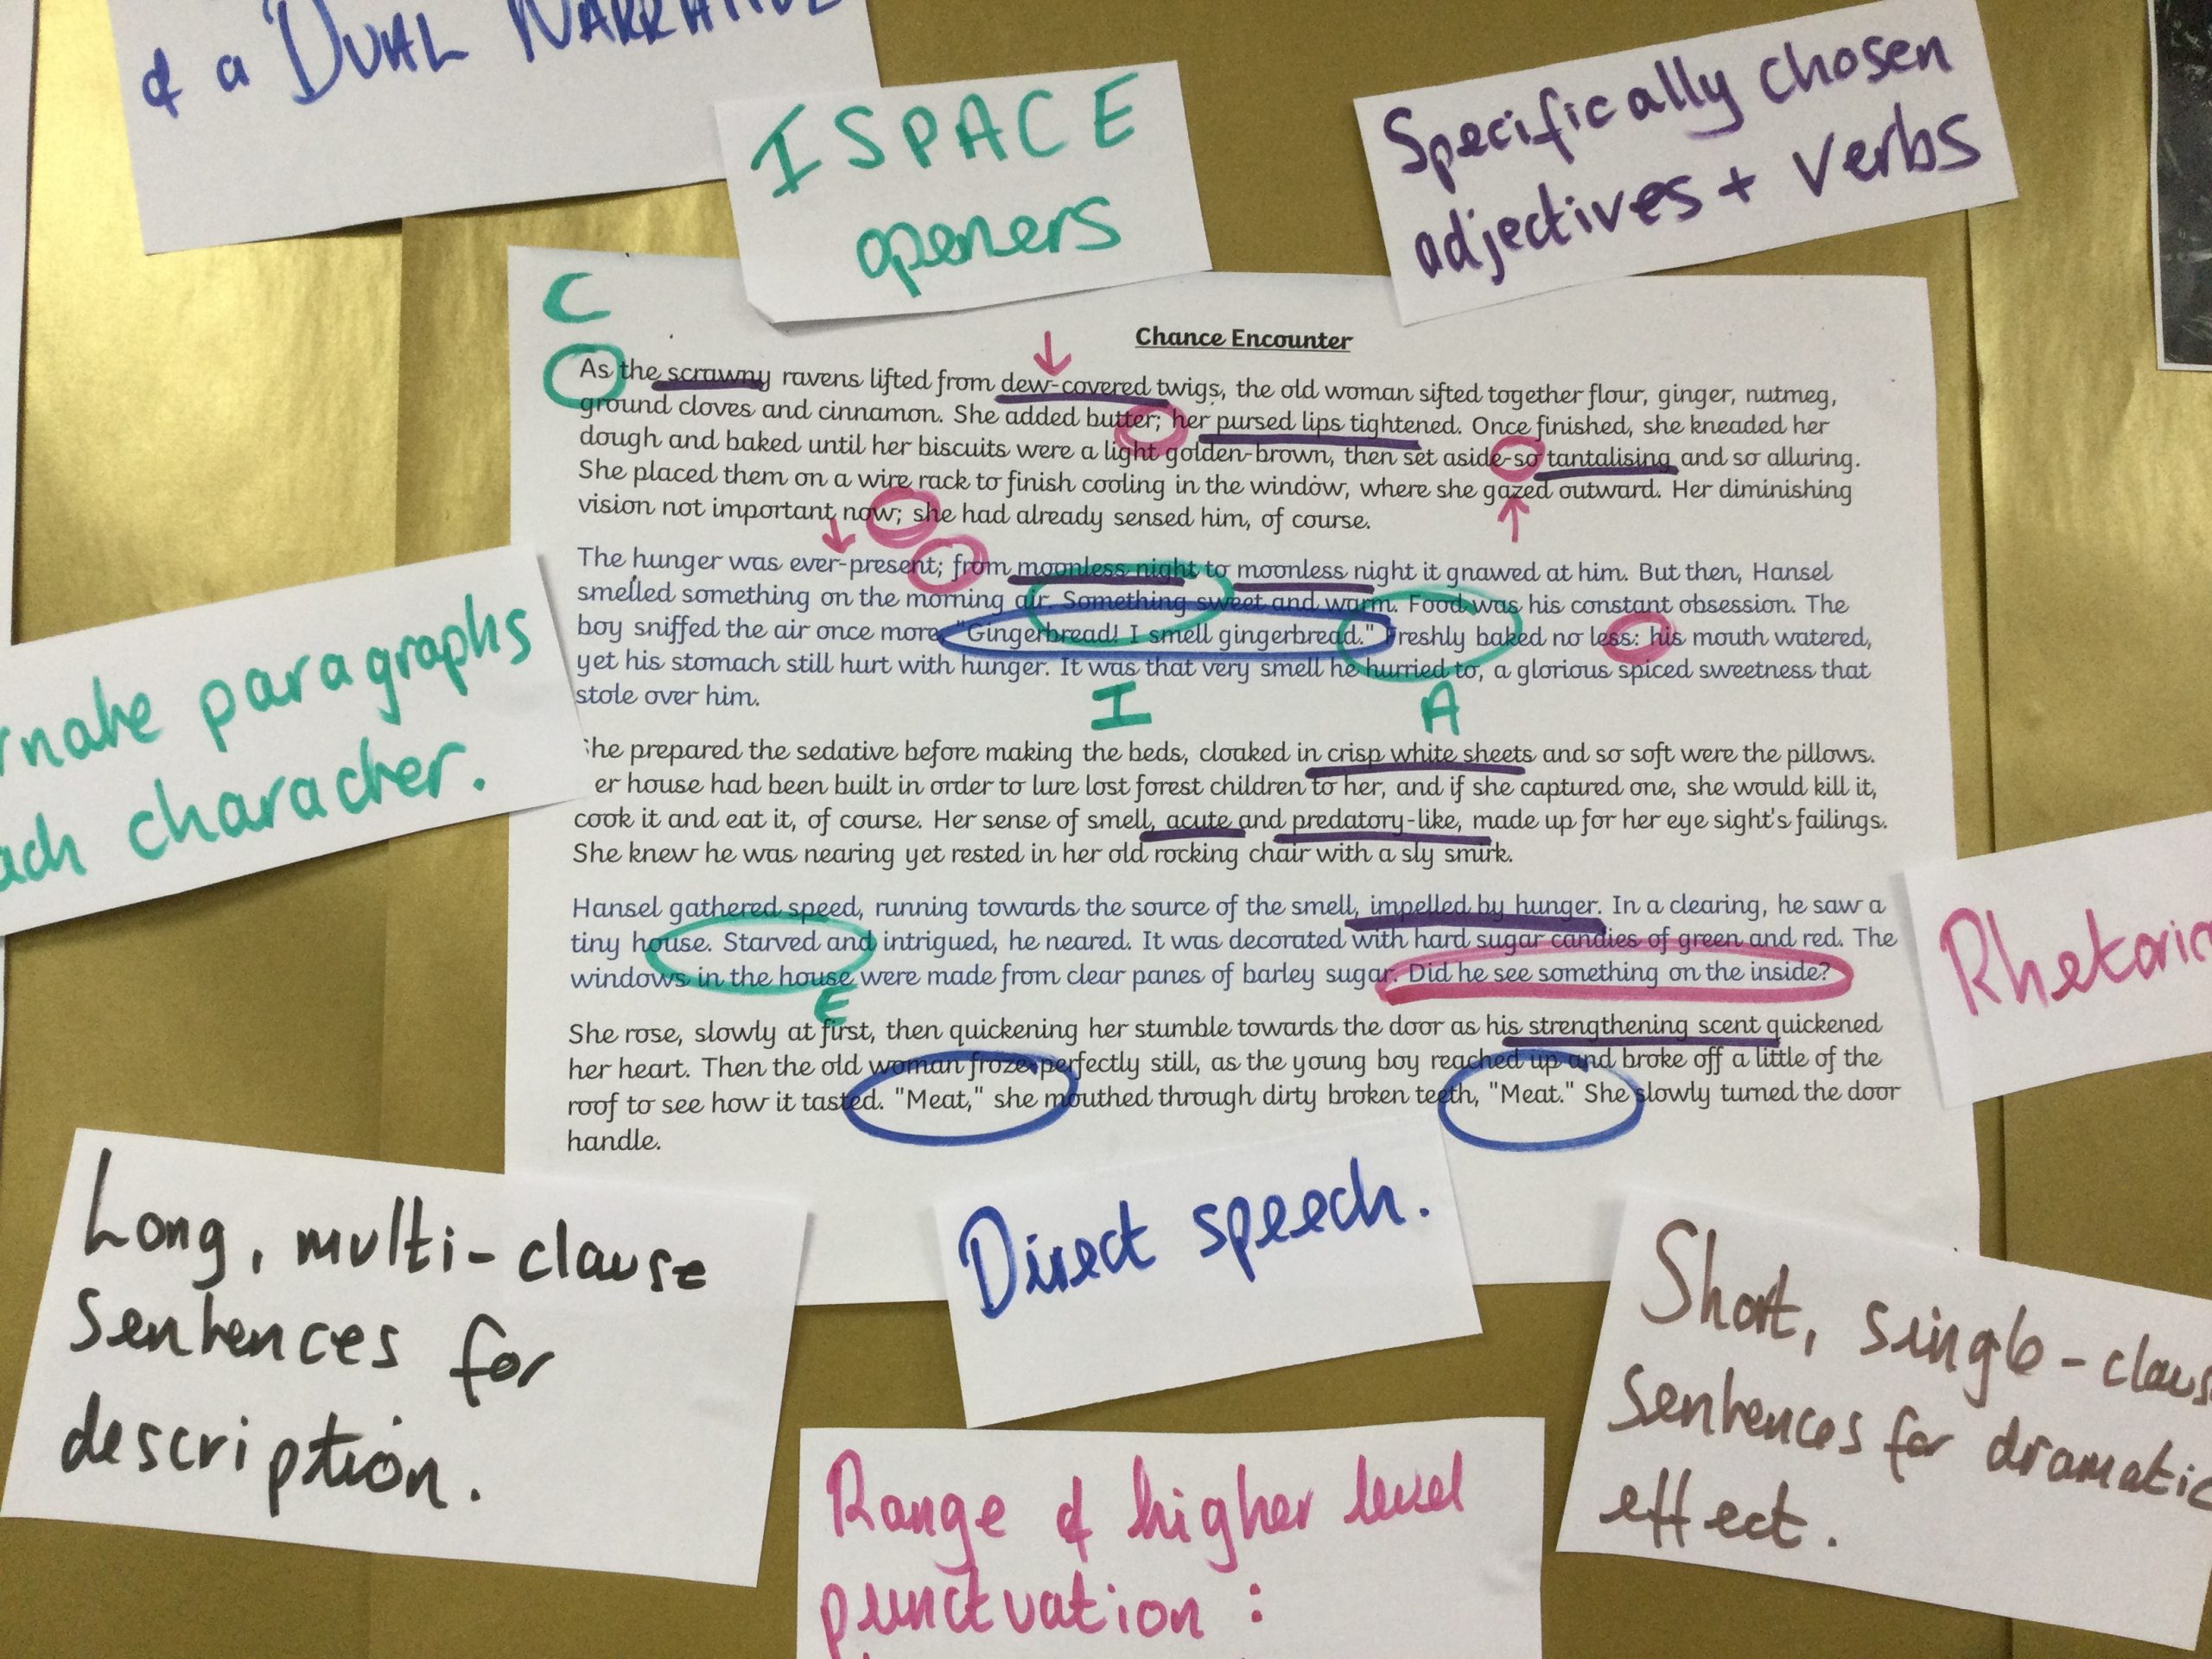 & a DUAL NARRATIVE
ISPACE
openers
Specifically chosen
adjectives + verbs
C
Chance Encounter
As the scrawny ravens lifted from dew-covered twigs, the old woman sifted together flour, ginger, nutmeg,
ground cloves and cinnamon. She added butter; her pursed lips tightened. Once finished, she kneaded her
dough and baked until her biscuits were a light golden-brown, then set aside-so tantalising and so alluring.
She placed them on a wire rack to finish cooling in the window, where she gazed outward. Her diminishing
vision not important now; she had already sensed him, of course.
The hunger was ever-present; from moonless night to moonless night it gnawed at him. But then, Hansel
smelled something on the morning air. Something sweet and warm. Food was his constant obsession. The
boy sniffed the air once more. "Gingerbread! I smell gingerbread." Freshly baked no less: his mouth watered,
yet his stomach still hurt with hunger. It was that very smell he hurried to, a glorious spiced sweetness that
stole over him.
I
A
he prepared the sedative before making the beds, cloaked in crisp white sheets and so soft were the pillows.
er house had been built in order to lure lost forest children to her, and if she captured one, she would kill it,
cook it and eat it, of course. Her sense of smell, acute and predatory-like, made up for her eye sight's failings.
She knew he was nearing yet rested in her old rocking chair with a sly smirk.
Hansel gathered speed, running towards the source of the smell, impelled by hunger. In a clearing, he saw a
tiny house. Starved and intrigued, he neared. It was decorated with hard sugar candies of green and red. The
windows in the house were made from clear panes of barley sugar. Did he see something on the inside?
E
She rose, slowly at first, then quickening her stumble towards the door as his strengthening scent quickened
her heart. Then the old woman froze perfectly still, as the young boy reached up and broke off a little of the
roof to see how it tasted. "Meat," she mouthed through dirty broken teeth, "Meat." She slowly turned the door
handle.
rnate paragraphs
ach character.
Rhetoric
Long, multi-clause
sentences for
description.
Direct speech.
Short, single-claus
sentences for dramatic
effect.
Range of higher level
punctuation :